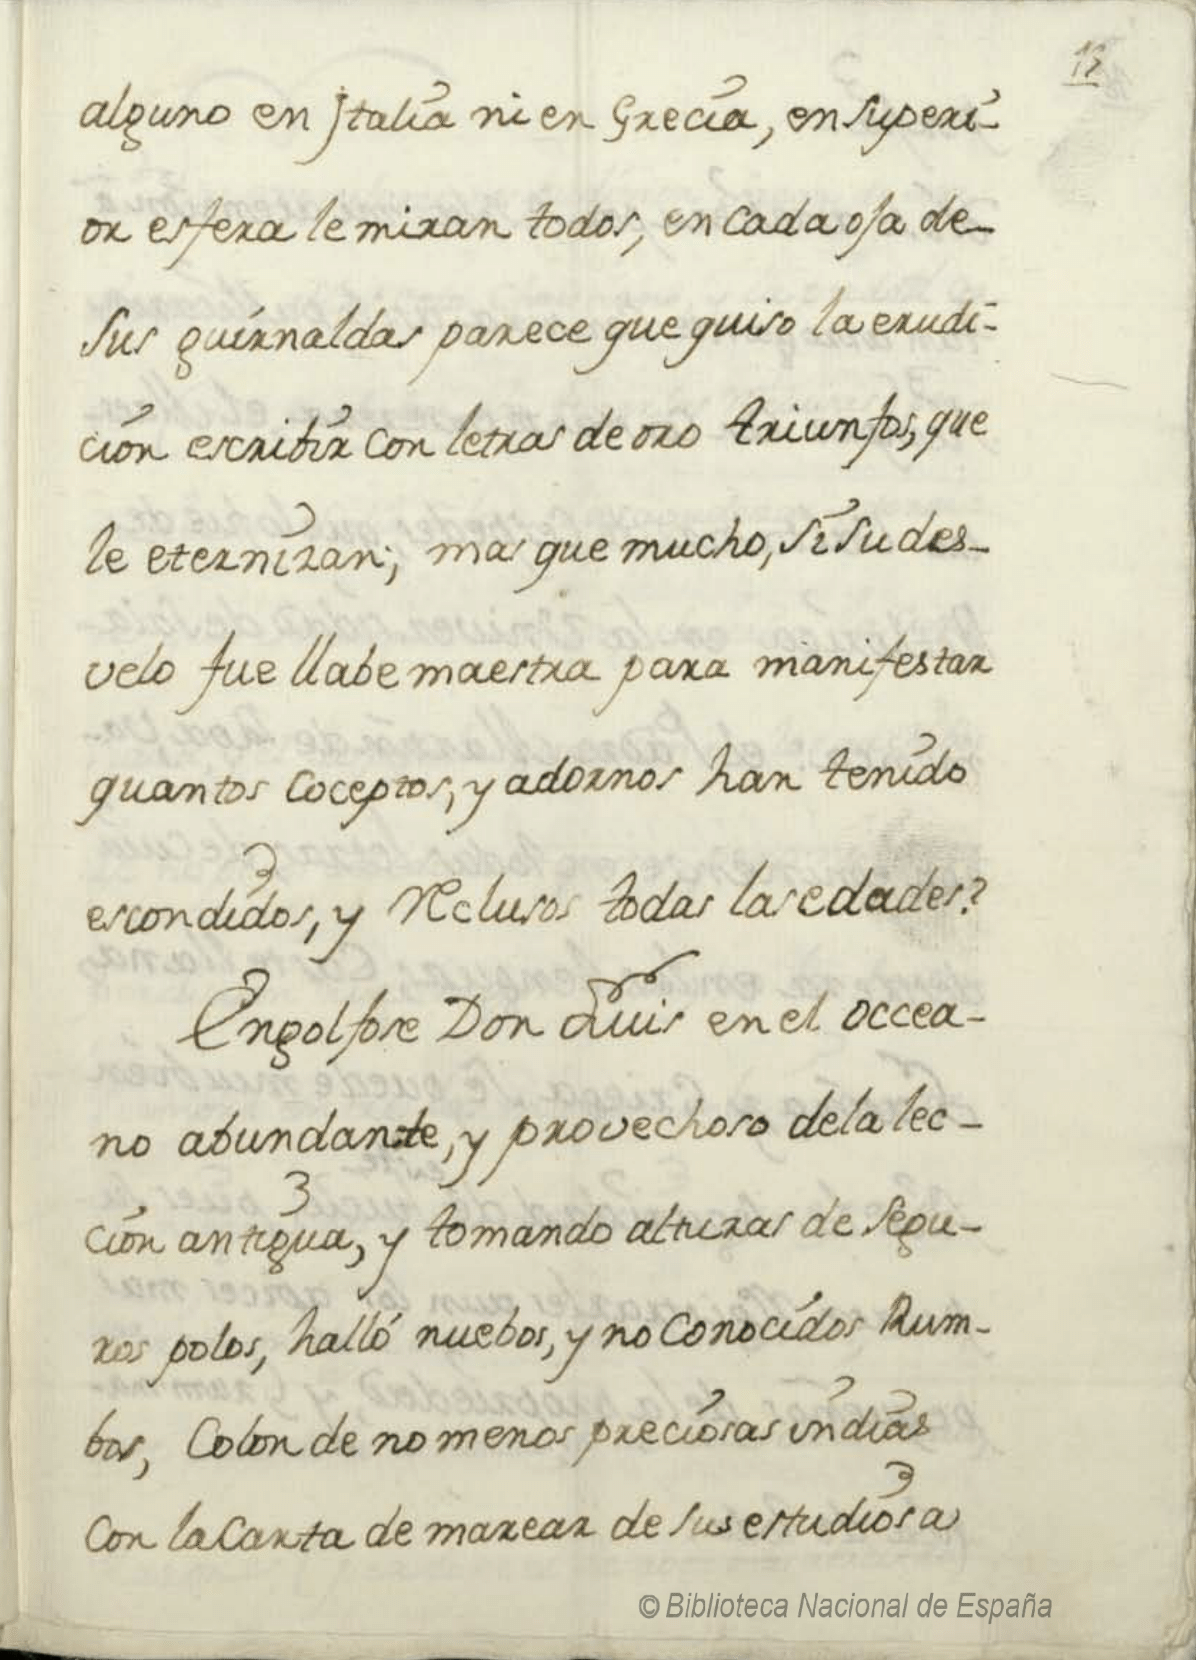 12
alguno en Italia ni en Grecia, en superi-
or esfera le miran todos, en cada oja de-
sus guirnaldas parece que quiso la erudi-
cion escribir con letras de oro triunfos, que
le eternizan; mas que mucho, si su des-
velo fue llabe maestra para manifestar
quantos coceptos, y adornos han tenido
escondidos, y reclusos todas las edades?
Engolfose Don Luis en el occea-
no abundante, y provechoso de la lec-
cion antigua, y tomando alturas de segu-
ros polos, halló nuebos, y no conocidos Rum-
bos, Colon de no menos preciosas indias
con la Carta de marear de sus estudiosa
© Biblioteca Nacional de España